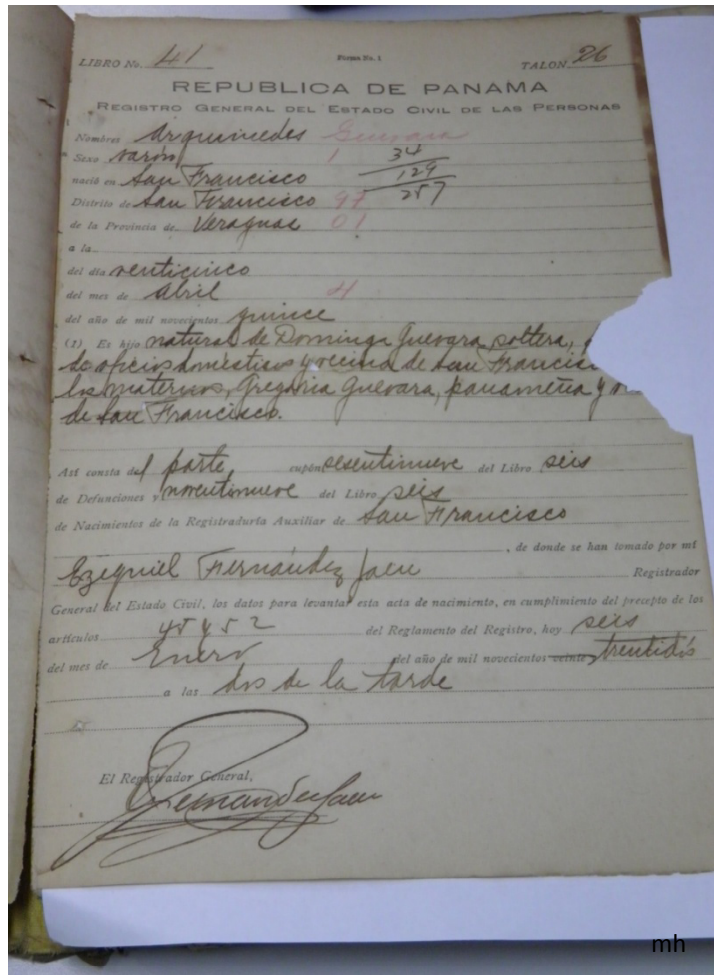 LIBRO No. 41 Forma No. 1 TALON 26
REPUBLICA DE PANAMA
REGISTRO GENERAL DEL ESTADO CIVIL DE LAS PERSONAS
Nombres Arquimedes Guevara
Sexo varón 1 34
nació en San Francisco 129
Distrito de San Francisco 97 257
de la Provincia de Veraguas 01
a la
del día venticinco
del mes de abril 4
del año de mil novecientos quince
(1) Es hijo natural de Dominga Guevara, soltera,
de oficios domésticos y vecina de San Francisco
los maternos, Gregoria Guevara, panameña y
de San Francisco.
Así consta del parte, cupón sesentinueve del Libro seis
de Defunciones y noventinueve del Libro seis
de Nacimientos de la Registraduría Auxiliar de San Francisco
, de donde se han tomado por mí
Ezequiel Fernández Jaen Registrador
General del Estado Civil, los datos para levantar esta acta de nacimiento, en cumplimiento del precepto de los
artículos 45 y 52 del Reglamento del Registro, hoy seis
del mes de Enero del año de mil novecientos veinte trentidós
a las dos de la tarde
El Registrador General,
Fernández Jaen
mh